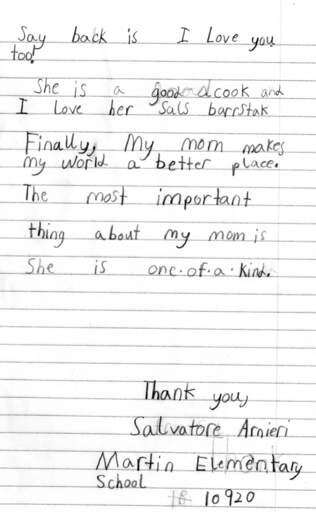 Say back is I Love you
too!
She is a good cook and
I Love her Sals barrstak
Finally, My mom makes
my world a better place.
The most important
thing about my mom is
She is one-of-a-kind.
Thank you,
Salvatore Arnieri
Martin Elementary
School
10920